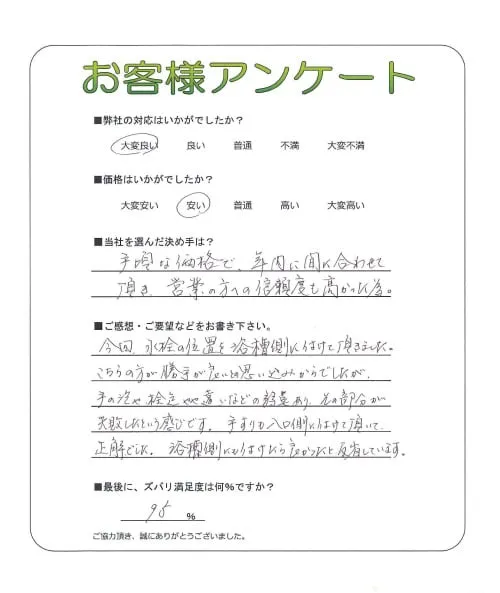 お客様アンケート
■弊社の対応はいかがでしたか？
大変良い 良い 普通 不満 大変不満
■価格はいかがでしたか？
大変安い 安い 普通 高い 大変高い
■当社を選んだ決め手は？
手頃な価格で、年内に間に合わせて
頂き、営業の方への信頼度も高かった為。
■ご感想・ご要望などをお書き下さい。
今回、水栓の位置を浴槽側に付けて頂きました。
こちらの方が勝手が良いと思い込みからでしたが、
手の泡や栓
違いなどの
あり、その部分が
失敗したという感じです。手すりも入口側に付けて頂いて、
正解でした。浴槽側にも付けたら良かったと反省しています。
■最後に、ズバリ満足度は何％ですか？
95 %
ご協力頂き、誠にありがとうございました。